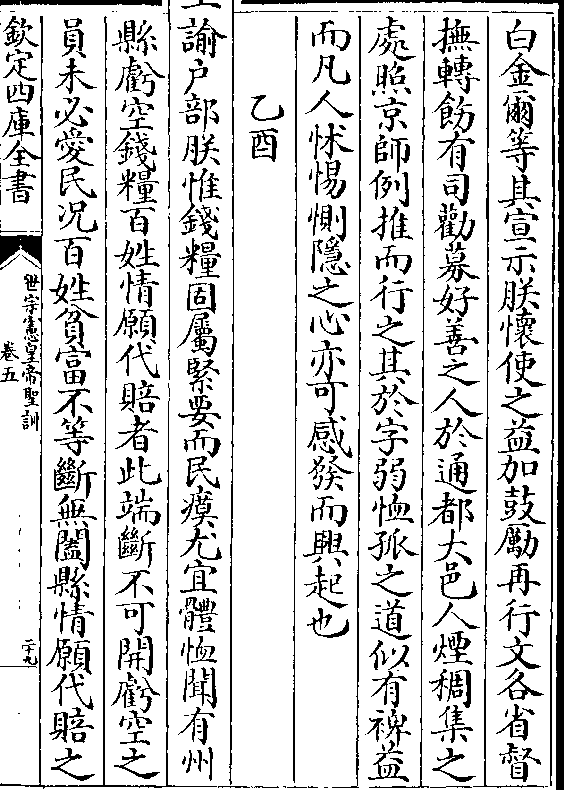 白金爾等其宣示朕懷使之益加鼓勵再行文各省督
撫轉飭有司勸募好善之人於通都大邑人煙稠集之
處照京師例推而行之其於字弱恤孤之道似有裨益
而凡人怵惕惻隱之心亦可感發而興起也
乙酉
上諭户部朕惟錢糧固屬緊要而民瘼尤宜體恤聞有州
縣虧空錢糧百姓情願代賠者此端斷不可開虧空之
員未必愛民况百姓貧富不等斷無闔縣情願代賠之
欽定四庫全書
世宗憲皇帝聖訓
卷五
二十九